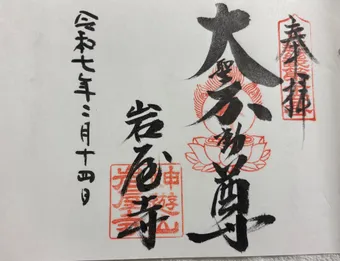 奉拝
大聖不動尊
岩屋寺
神遊山
岩屋寺
令和七年二月十四日